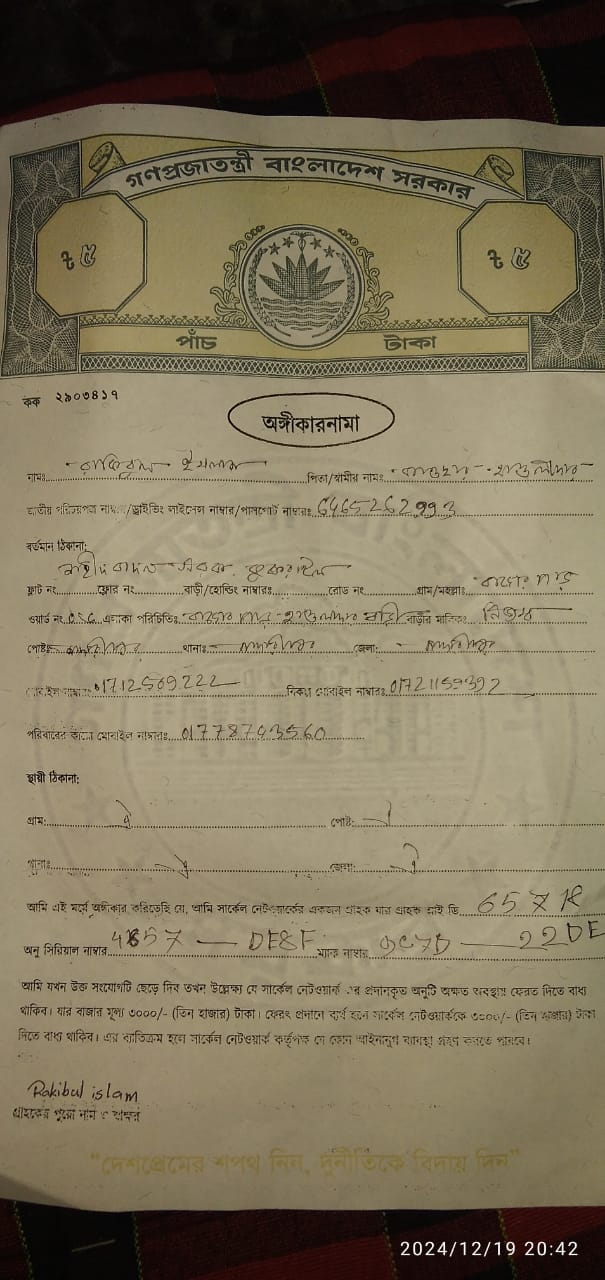 গণপ্রজাতন্ত্রী বাংলাদেশ সরকার
৳ ৫ ৳ ৫
পাঁচ টাকা
কক ২৯০৩৪১৭
অঙ্গীকারনামা
নামঃ রাকিবুল ইসলাম পিতা/স্বামীর নামঃ হাওলাদার
জাতীয় পরিচয়পত্র নাম্বার/ড্রাইভিং লাইসেন্স নাম্বার/পাসপোর্ট নাম্বারঃ 6465262993
বর্তমান ঠিকানা:
ফ্লাট নং ফ্লোর নং বাড়ী/হোল্ডিং নাম্বারঃ রোড নং গ্রাম/মহল্লাঃ
ওয়ার্ড নং এলাকা পরিচিতিঃ হাওলাদার বাড়ী বাড়ীর মালিকঃ নিজস্ব
পোষ্টঃ মাদারীপুর থানাঃ মাদারীপুর জেলা: মাদারীপুর
মোবাইল নাম্বারঃ 01712569222 বিকল্প মোবাইল নাম্বারঃ 01721159392
পরিবারের কারো মোবাইল নাম্বারঃ 01778743560
স্থায়ী ঠিকানা:
গ্রাম: ঐ পোষ্ট: ঐ
থানাঃ ঐ জেলা: ঐ
আমি এই মর্মে অঙ্গীকার করিতেছি যে, আমি সার্কেল নেটওয়ার্কের একজন গ্রাহক যার গ্রাহক আই ডি 657R
অনু সিরিয়াল নাম্বার DE8F ম্যাক নাম্বার 9C7D 22DE
আমি যখন উক্ত সংযোগটি ছেড়ে দিব তখন উল্লেখ্য যে সার্কেল নেটওয়ার্ক এর প্রদানকৃত অনুটি অক্ষত অবস্থায় ফেরত দিতে বাধ্য
থাকিব। যার বাজার মূল্য ৩০০০/- (তিন হাজার) টাকা। ফেরৎ প্রদানে ব্যর্থ হলে সার্কেল নেটওয়ার্ককে ৩০০০/- (তিন হাজার) টাকা
দিতে বাধ্য থাকিব। এর ব্যতিক্রম হলে সার্কেল নেটওয়ার্ক কর্তৃপক্ষ যে কোন আইনানুগ ব্যবস্থা গ্রহণ করতে পারবে।
Rakibul islam
গ্রাহকের পুরো নাম ও স্বাক্ষর
"দেশপ্রেমের শপথ নিন, দুর্নীতিকে বিদায় দিন"
2024/12/19 20:42